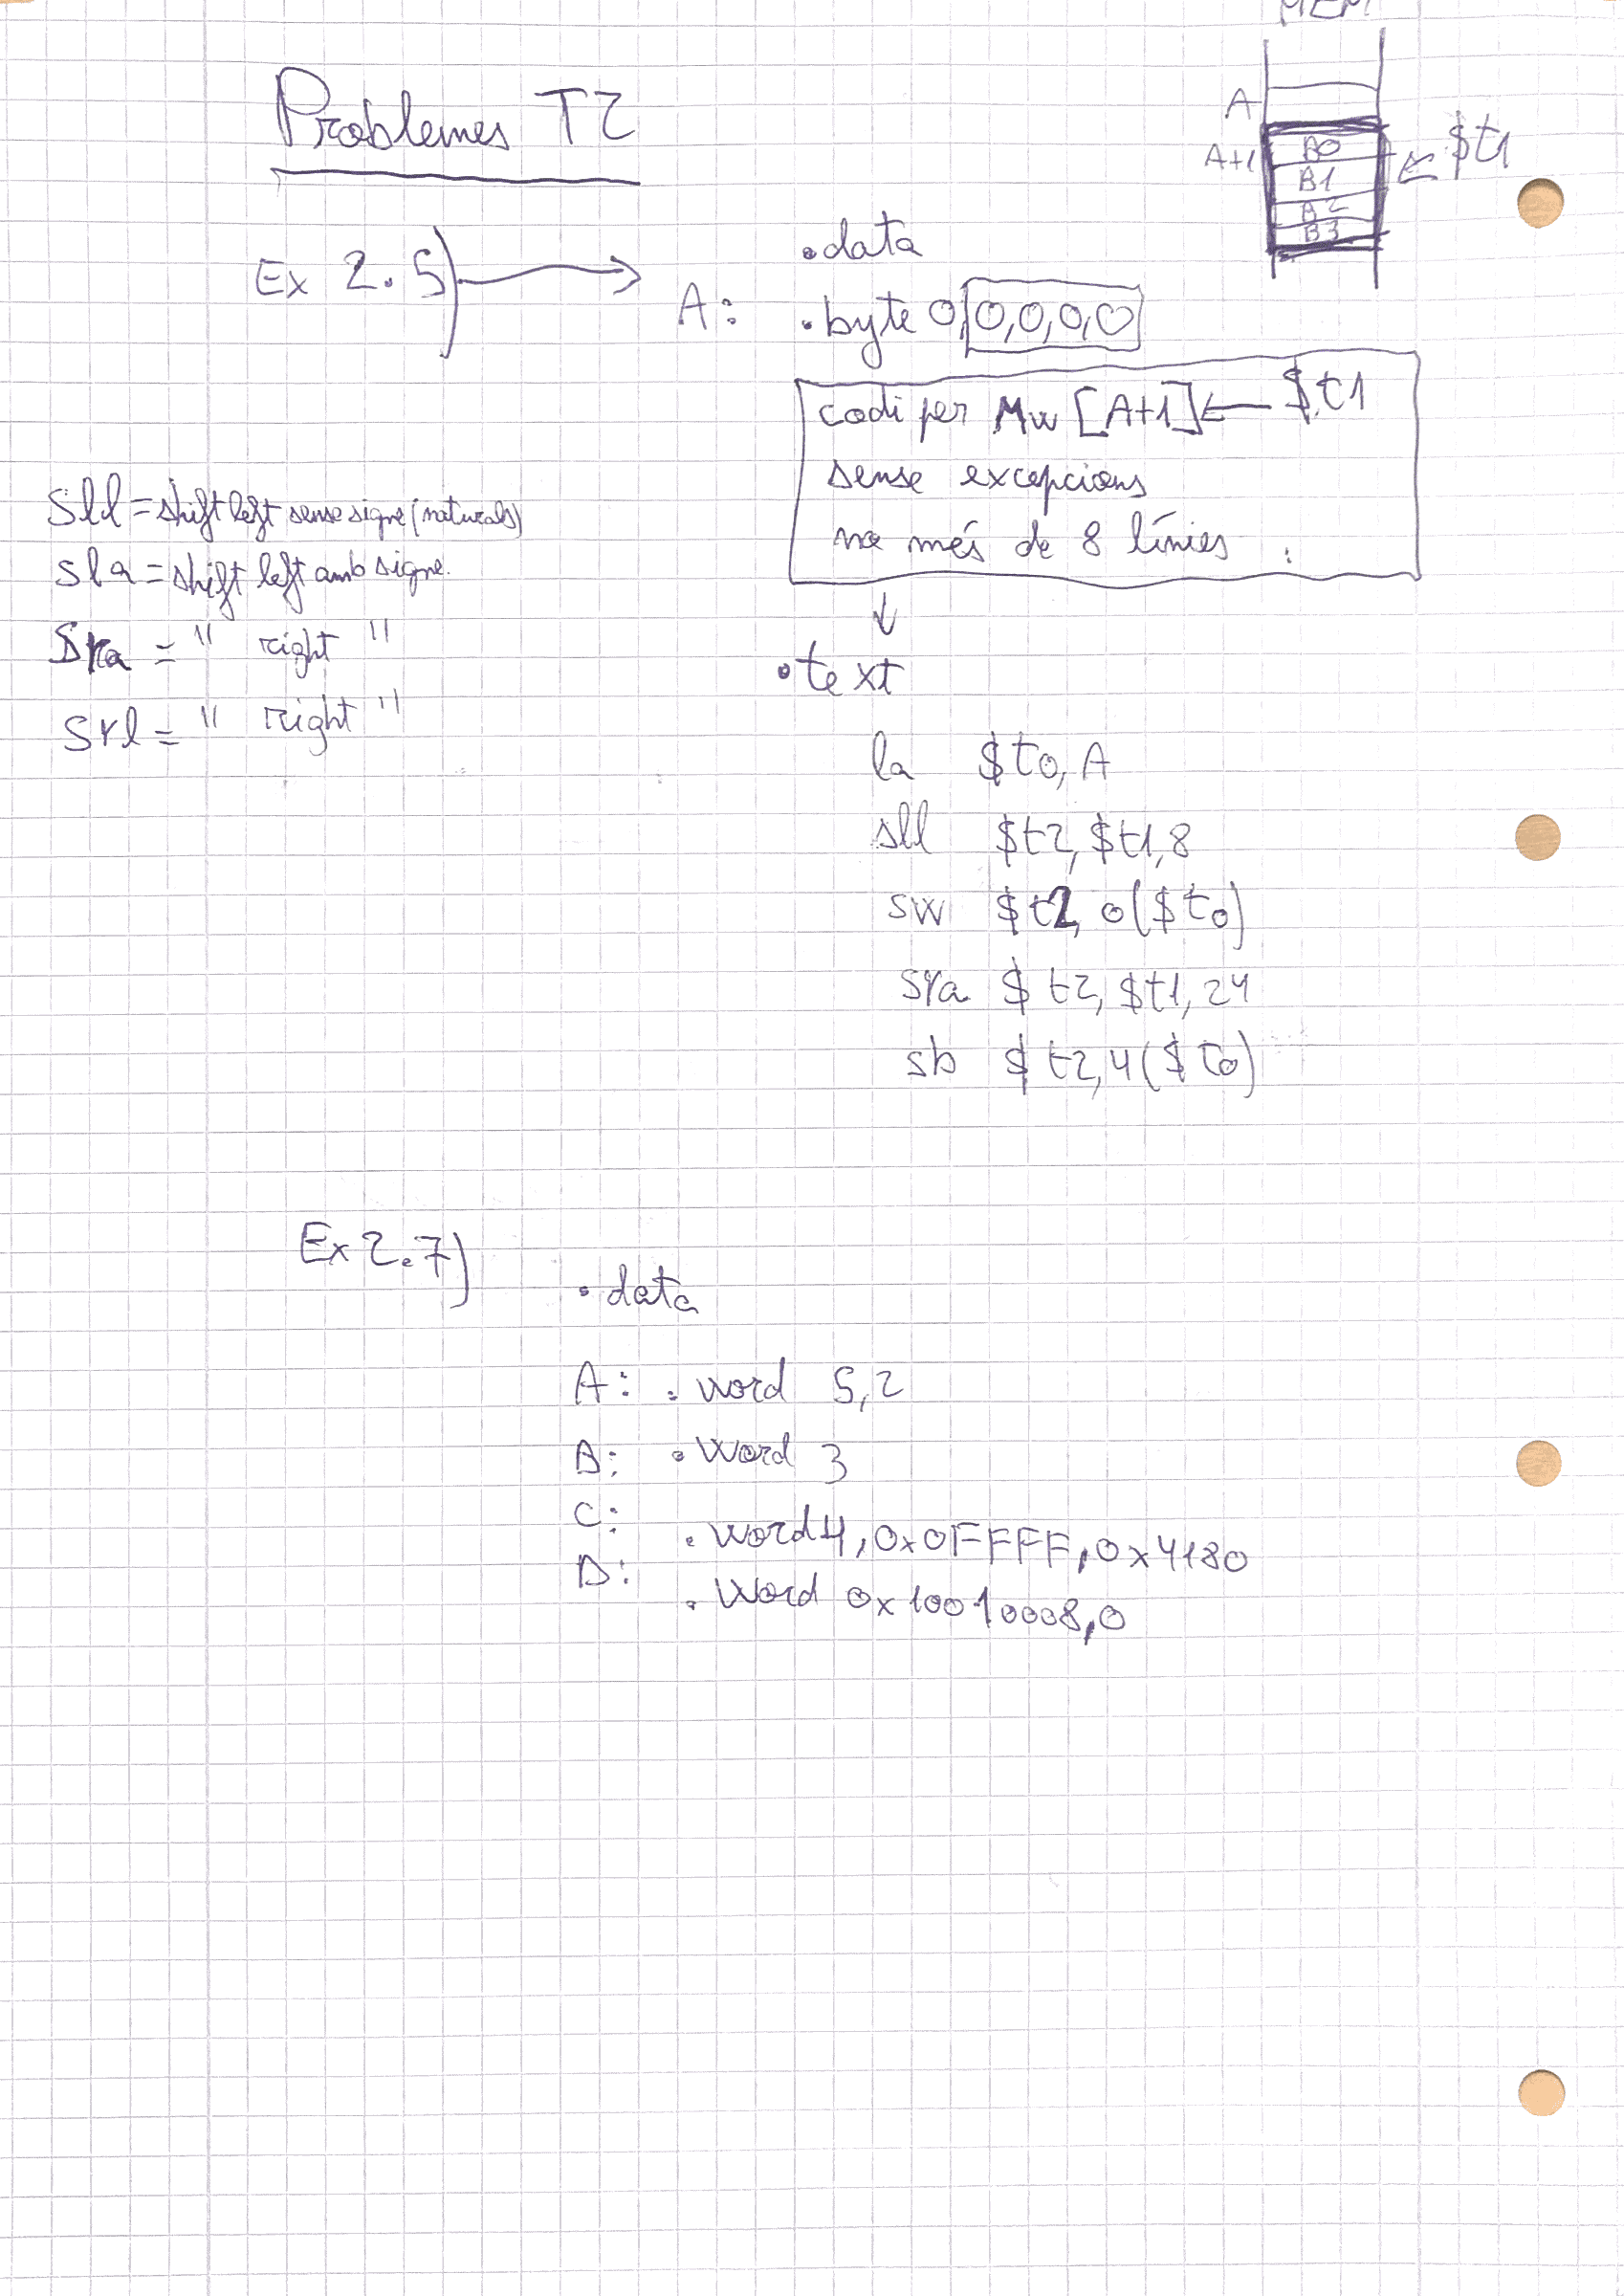 MEM
Problemes T2
A
A+1 B0 ← $t1
B1
B2
B3
Ex 2.5) → .data
A: .byte 0,0,0,0,0
codi per Mw [A+1] ← $t1
sense excepcions
no més de 8 línies :
sll = shift left sense signe (naturals)
sla = shift left amb signe.
Sra = " right "
Srl = " right "
↓
.text
la $t0, A
sll $t2, $t1, 8
sw $t2, 0($t0)
sra $t2, $t1, 24
sb $t2, 4($t0)
Ex 2.7)
.data
A: .word 5,2
B: .word 3
C: .word 4, 0x0FFFF, 0x4180
D: .word 0x10010008, 0